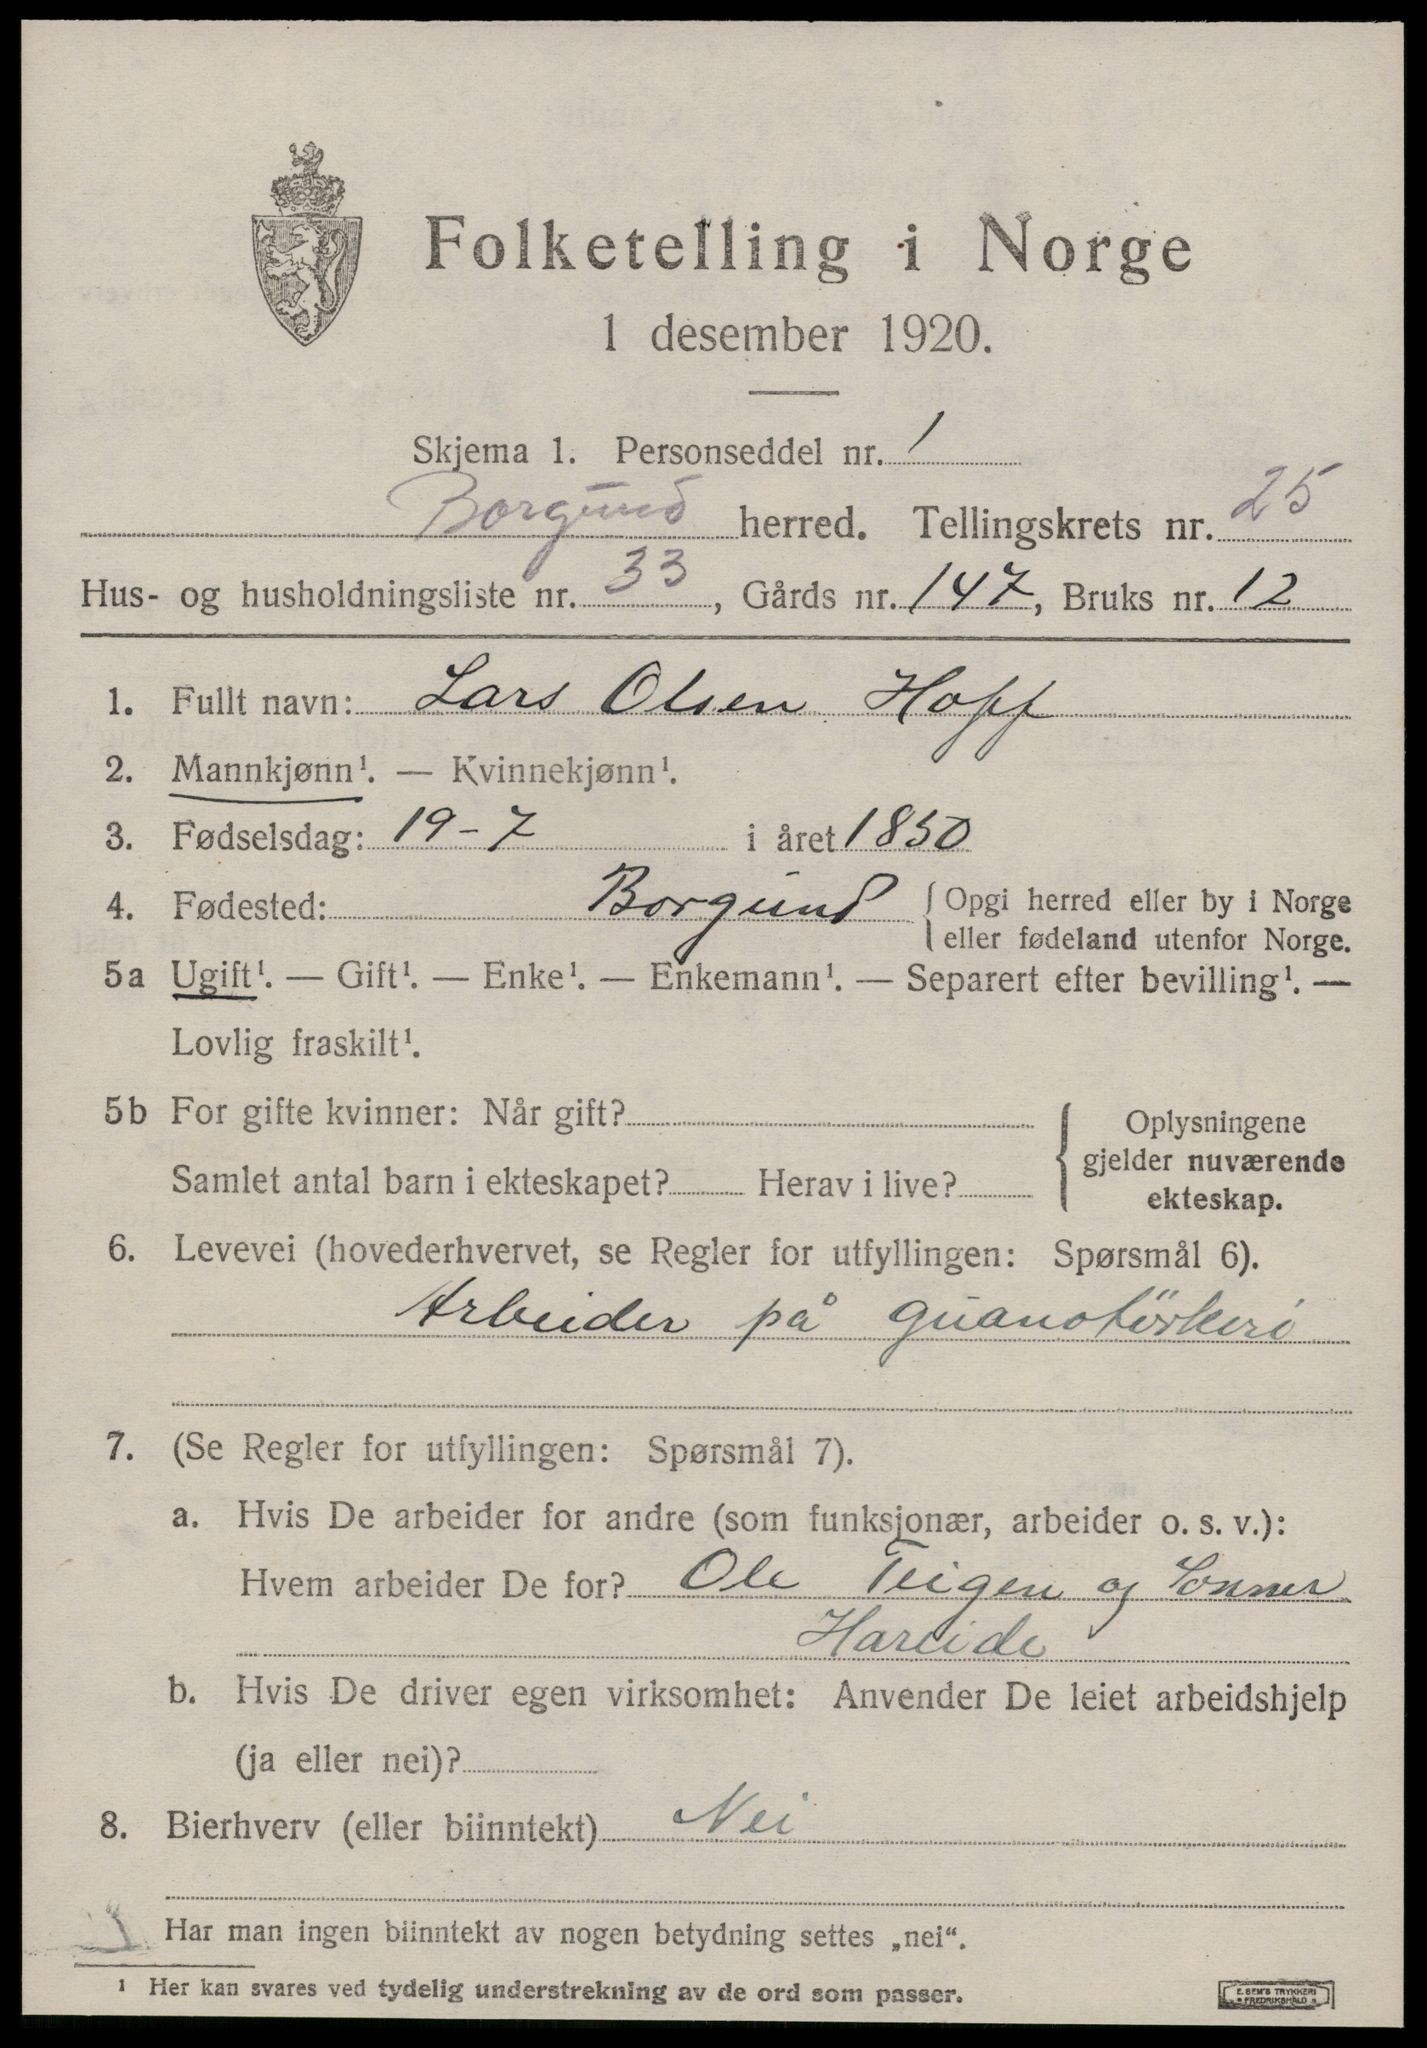 Folketelling i Norge
1 desember 1920.
Skjema 1. Personseddel nr. 1
Borgund herred. Tellingskrets nr. 25
Hus- og husholdningsliste nr. 33, Gårds nr. 147, Bruks nr. 12
1. Fullt navn: Lars Olsen Hoff
2. Mannkjønn¹. — Kvinnekjønn¹.
3. Fødselsdag: 19-7 i året 1850
4. Fødested: Borgund { Opgi herred eller by i Norge
eller fødeland utenfor Norge.
5a Ugift¹. — Gift¹. — Enke¹. — Enkemann¹. — Separert efter bevilling¹. —
Lovlig fraskilt¹.
5b For gifte kvinner: Når gift?
Samlet antal barn i ekteskapet? Herav i live?
Oplysningene
gjelder nuværende
ekteskap.
6. Levevei (hovederhvervet, se Regler for utfyllingen: Spørsmål 6).
Arbeider på guanotörkeri
7. (Se Regler for utfyllingen: Spørsmål 7).
a. Hvis De arbeider for andre (som funksjonær, arbeider o. s. v.):
Hvem arbeider De for? Ole Teigen og Sönner
Hareide
b. Hvis De driver egen virksomhet: Anvender De leiet arbeidshjelp
(ja eller nei)?
8. Bierhverv (eller biinntekt) Nei
Har man ingen biinntekt av nogen betydning settes „nei“.
¹ Her kan svares ved tydelig understrekning av de ord som passer.
E. SEM'S TRYKKERI
FREDRIKSHALD